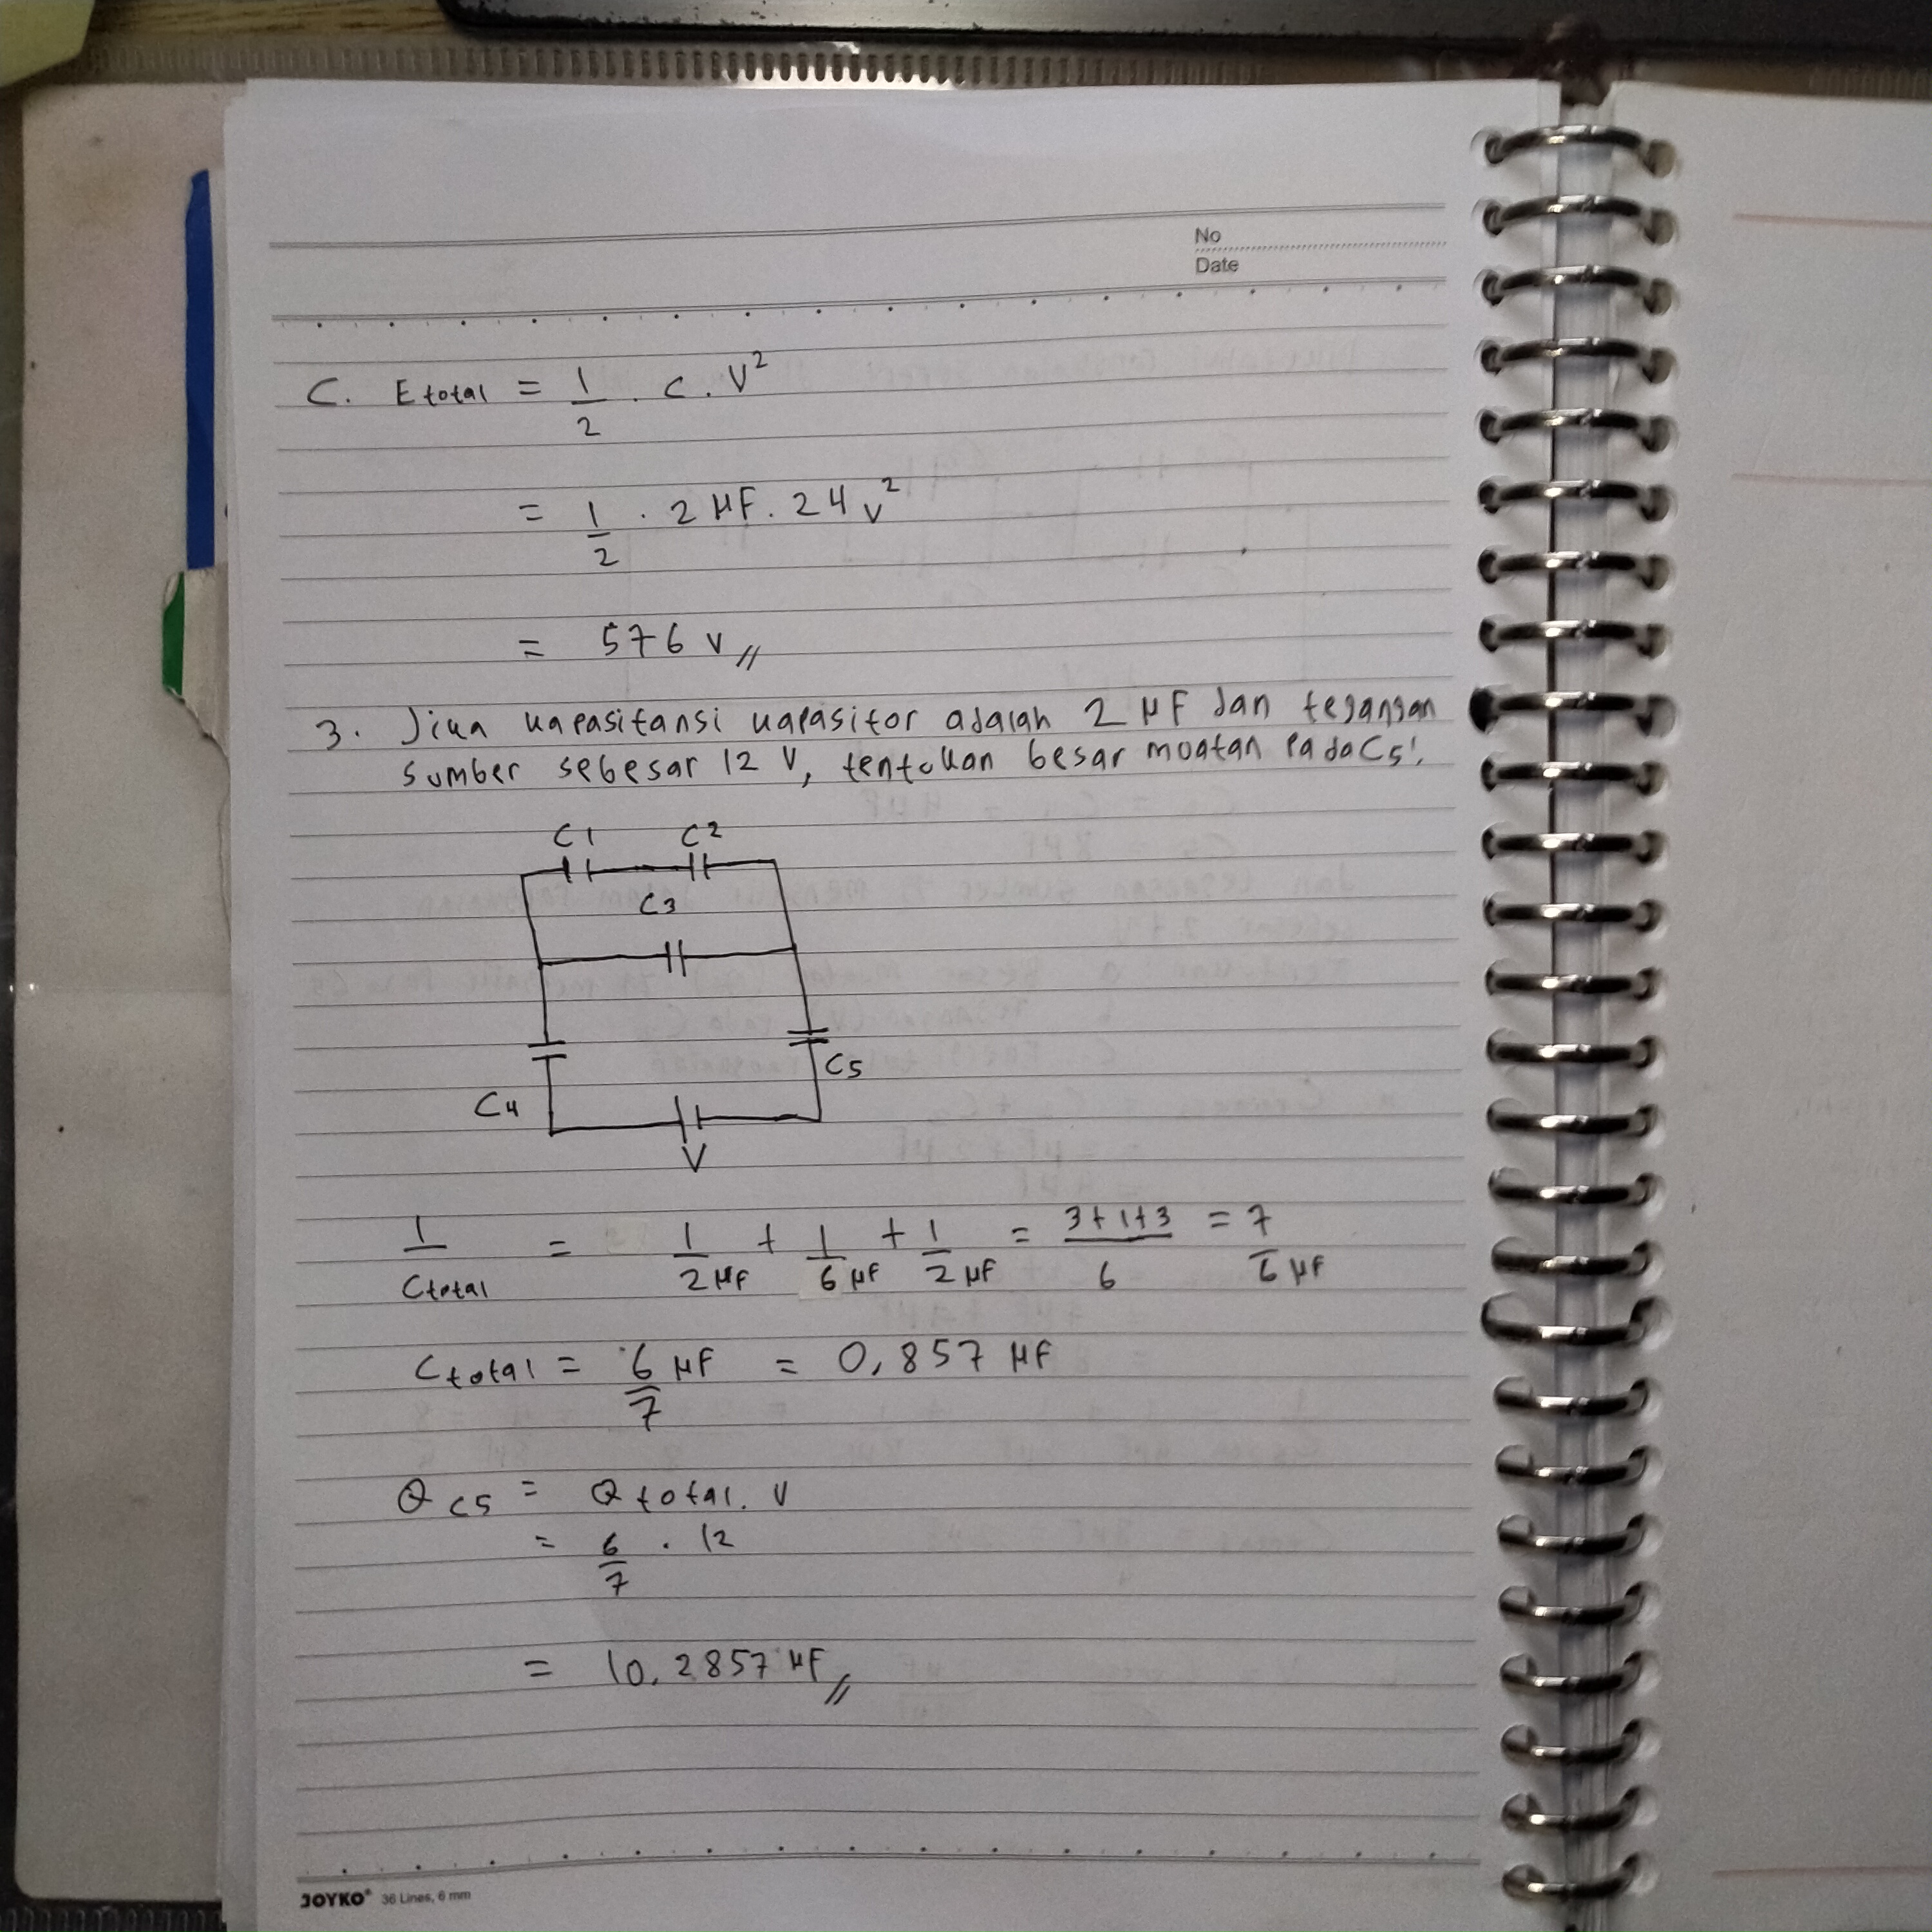 No
Date
C. E total = 1/2 . C . V²
= 1/2 . 2 μF . 24 V²
= 576 V //
3. Jika kapasitansi kapasitor adalah 2 μF dan tegangan
sumber sebesar 12 V, tentukan besar muatan pada C5!
C1 C2
C3
C5
C4
V
1/Ctotal = 1/2 μF + 1/6 μF + 1/2 μF = 3+1+3/6 = 7/6 μF
Ctotal = 6/7 μF = 0,857 μF
Q C5 = Q total . V
= 6/7 . 12
= 10,2857 μF //
JOYKO® 36 Lines, 6 mm